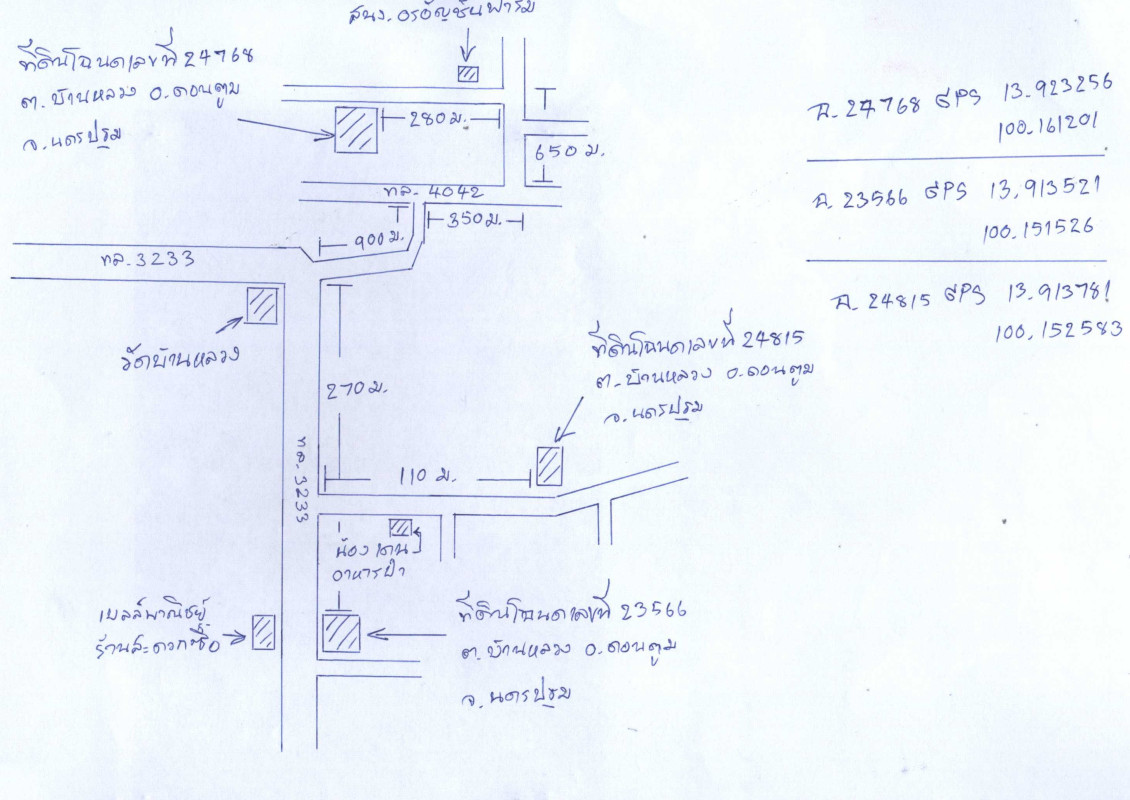 สนง. อรอัญชันฟาร์ม
ที่ดินโฉนดเลขที่ 24768
ต. บ้านหลวง อ. ดอนตูม
จ. นครปฐม
280 ม.
650 ม.
ทล. 4042
350 ม.
900 ม.
ทล. 3233
วัดบ้านหลวง
270 ม.
ทล. 3233
110 ม.
ที่ดินโฉนดเลขที่ 24815
ต. บ้านหลวง อ. ดอนตูม
จ. นครปฐม
น้องเตน
อาหารป่า
เบลล์พาณิชย์
ร้านสะดวกซื้อ
ที่ดินโฉนดเลขที่ 23566
ต. บ้านหลวง อ. ดอนตูม
จ. นครปฐม
ฉ. 24768 GPS 13.923256
100.161201
ฉ. 23566 GPS 13.913521
100.151526
ฉ. 24815 GPS 13.913781
100.152583